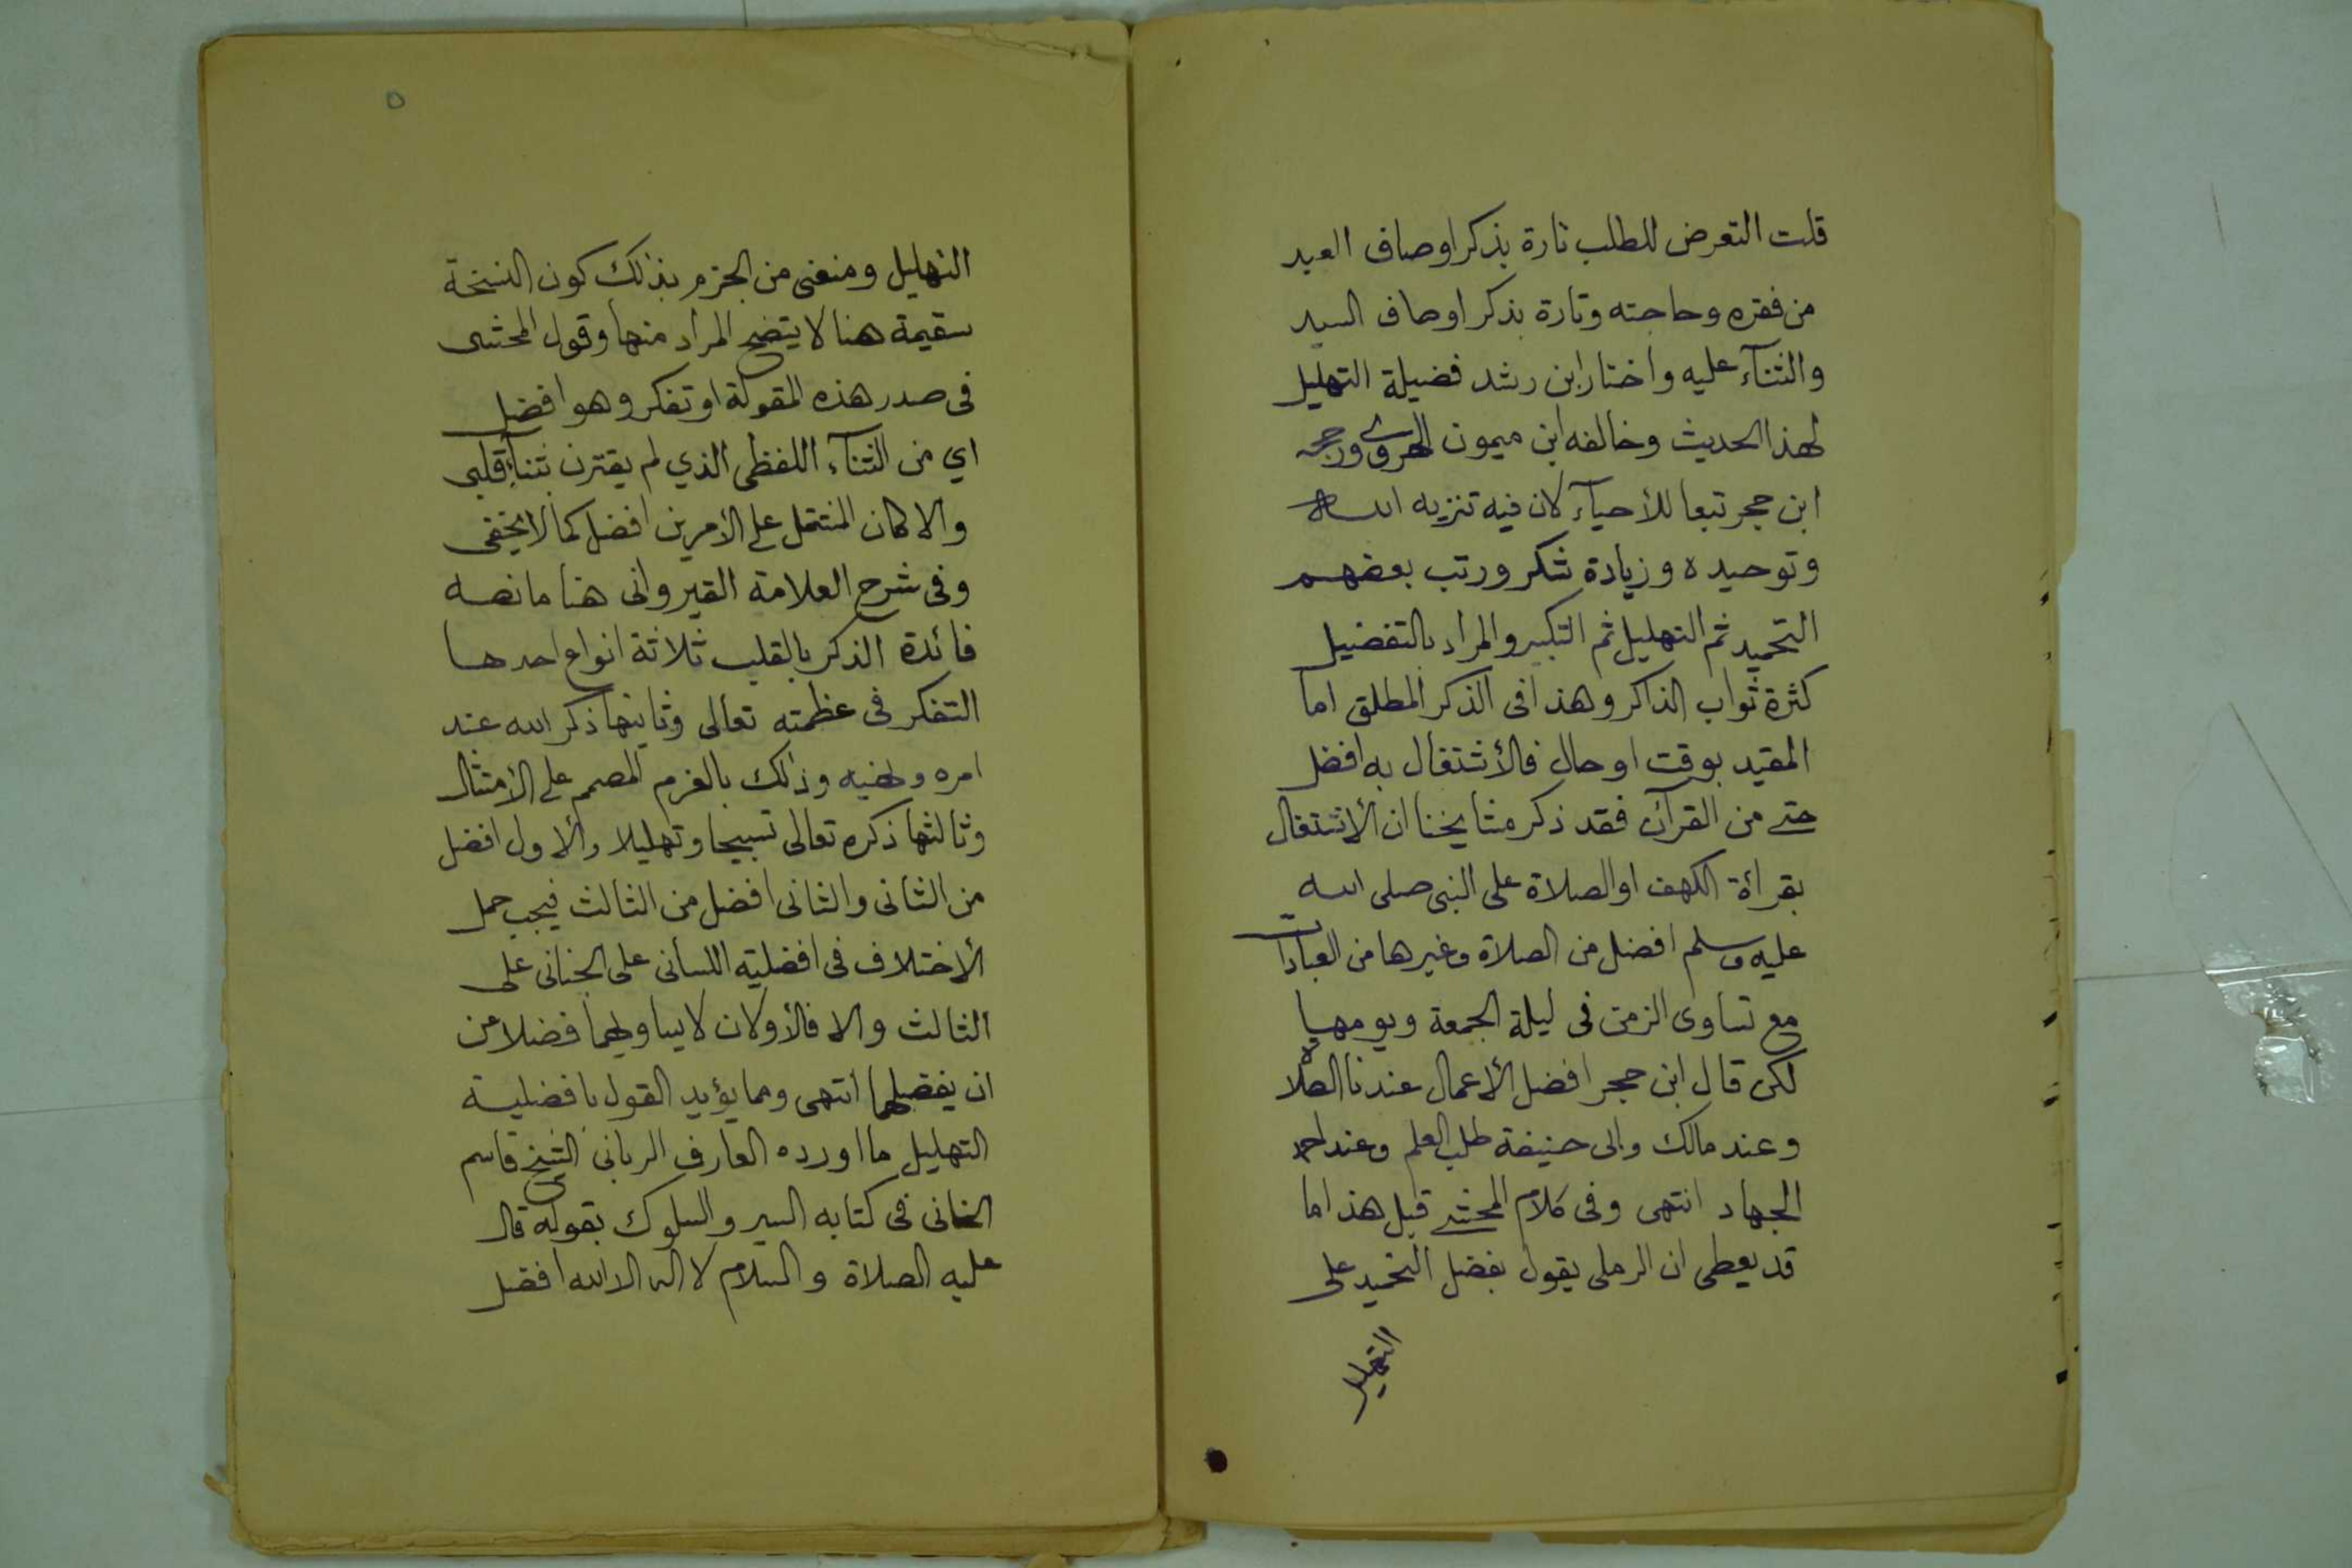 قلت التعرض للطلب تارة بذكر اوصاف العبد
من فقره وحاجته وتارة بذكر اوصاف السيد
والثنآء عليه واختار ابن رشد فضيلة التهليل
لهذا الحديث وخالفه ابن ميمون ورجحه
ابن حجر تبعا للأحيآء لان فيه تنزيه الله
وتوحيده وزيادة شكر ورتب بعضهم
التحميد ثم التهليل ثم التكبير والمراد بالتفضيل
كثرة ثواب الذاكر وهذا فى الذكر المطلق اما
المقيد بوقت او حال فالأشتغال به افضل
حتى من القرآن فقد ذكر مشايخنا ان الأشتغال
بقرأة الكهف او الصلاة على النبى صلى الله
عليه وسلم افضل من الصلاة وغيرها من العبادات
مع تساوى الزمن فى ليلة الجمعة ويومها
لكن قال ابن حجر افضل الأعمال عندنا الصلاة
وعند مالك وابى حنيفة طلب العلم وعند احمد
الجهاد انتهى وفى كلام المحشى قبل هذا ما
قد يعطى ان الرملى يقول بفضل التحميد على
التهليل
٥
التهليل ومنعنى من الجزم بذلك كون النسخة
سقيمة هنا لا يتضح المراد منها وقول المحشى
فى صدر هذه المقولة او تفكر وهو افضل
اي من الثنآء اللفظى الذي لم يقترن بثنآء قلبى
والا كان المشتمل على الأمرين افضل كما لا يخفى
وفى شرح العلامة القيروانى هنا ما نصه
فائدة الذكر بالقلب ثلاثة انواع احدها
التفكر فى عظمته تعالى وثانيها ذكر الله عند
امره ونهيه وذلك بالعزم المصمم على الأمتثال
وثالثها ذكره تعالى تسبيحا وتهليلا والأول افضل
من الثانى والثانى افضل من الثالث فيجب حمل
الأختلاف فى افضلية اللسانى على الجنانى على
الثالث والا فالأولان لا يساويهما فضلا عن
ان يفضلهما انتهى ومما يؤيد القول بافضلية
التهليل ما اورده العارف الربانى الشيخ قاسم
الخانى فى كتابه السير والسلوك بقوله قال
عليه الصلاة والسلام لا اله الا الله افضل